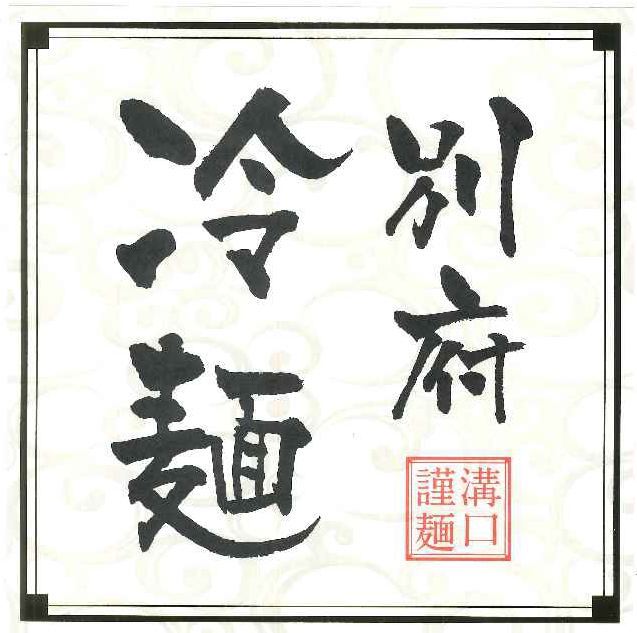 別府
冷麺
溝口
謹麺